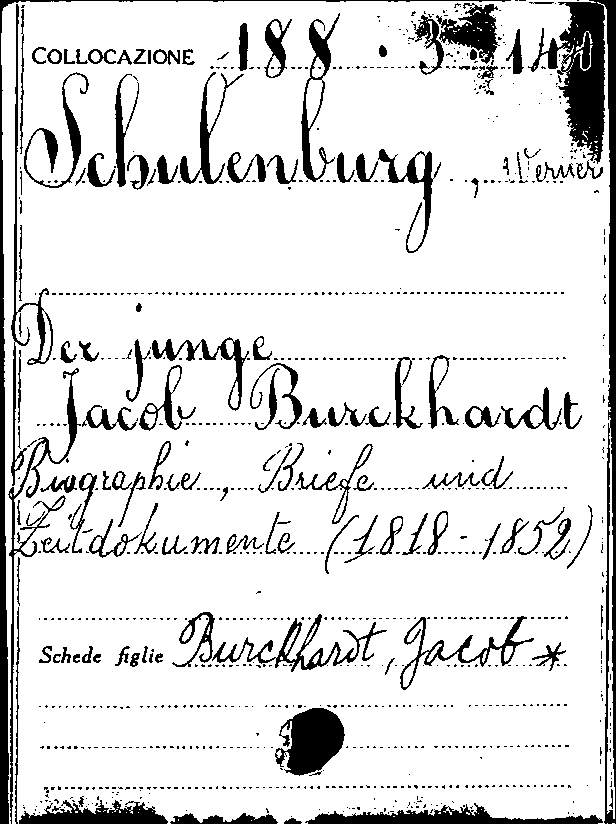 COLLOCAZIONE 188.3.140
Schulenburg, Werner
Der junge
Jacob Burckhardt
Biographie, Briefe und
Zeitdokumente (1818-1852)
Schede figlie Burckhardt, Jacob *